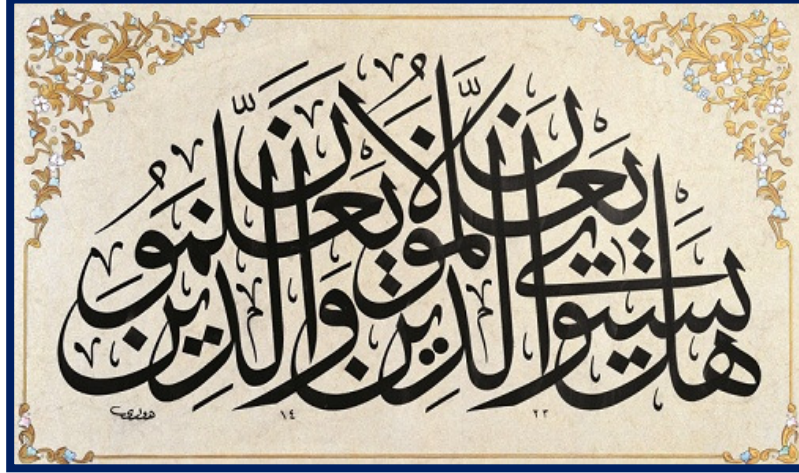 هل يستوي الذين يعلمون والذين لا يعلمون
١٤ ٢٣